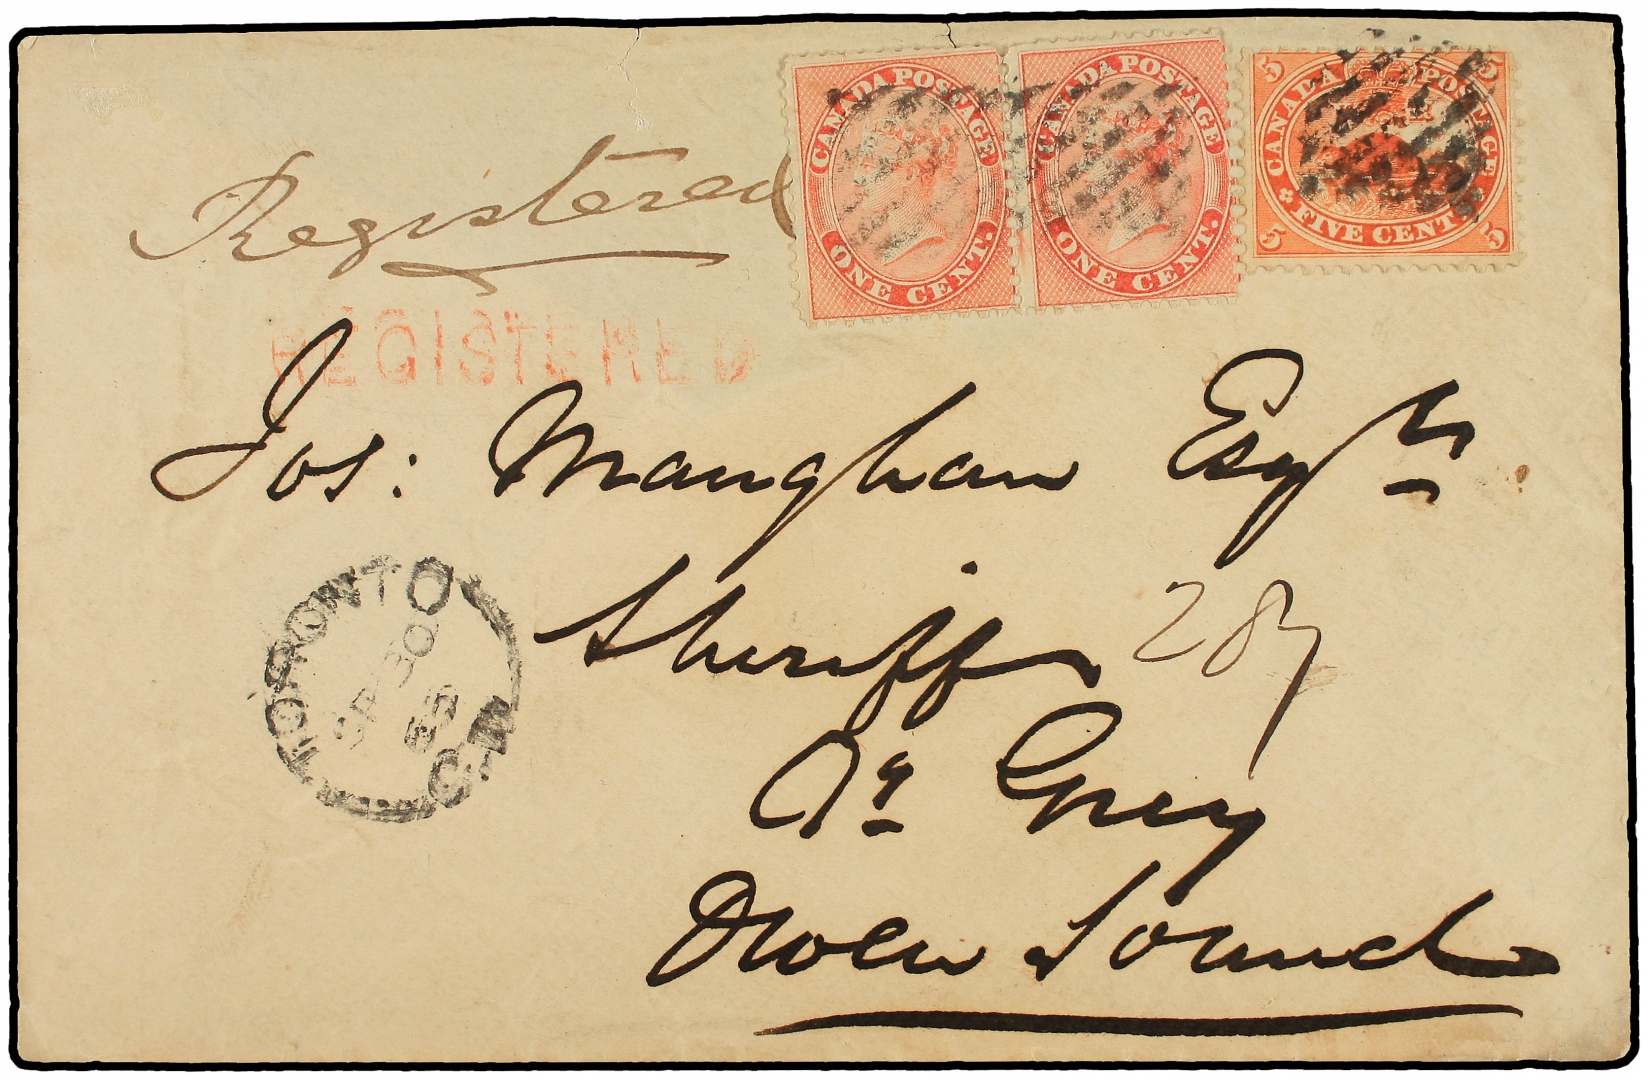 CANADA POSTAGE
ONE CENT.
CANADA POSTAGE
ONE CENT.
5 CANADA POSTAGE 5
5 FIVE CENTS 5
Registered
REGISTERED
Jos: Maughan Esqre
Sheriff
287
Co Grey
Owen Sound
TORONTO
SP 30
65
C.W